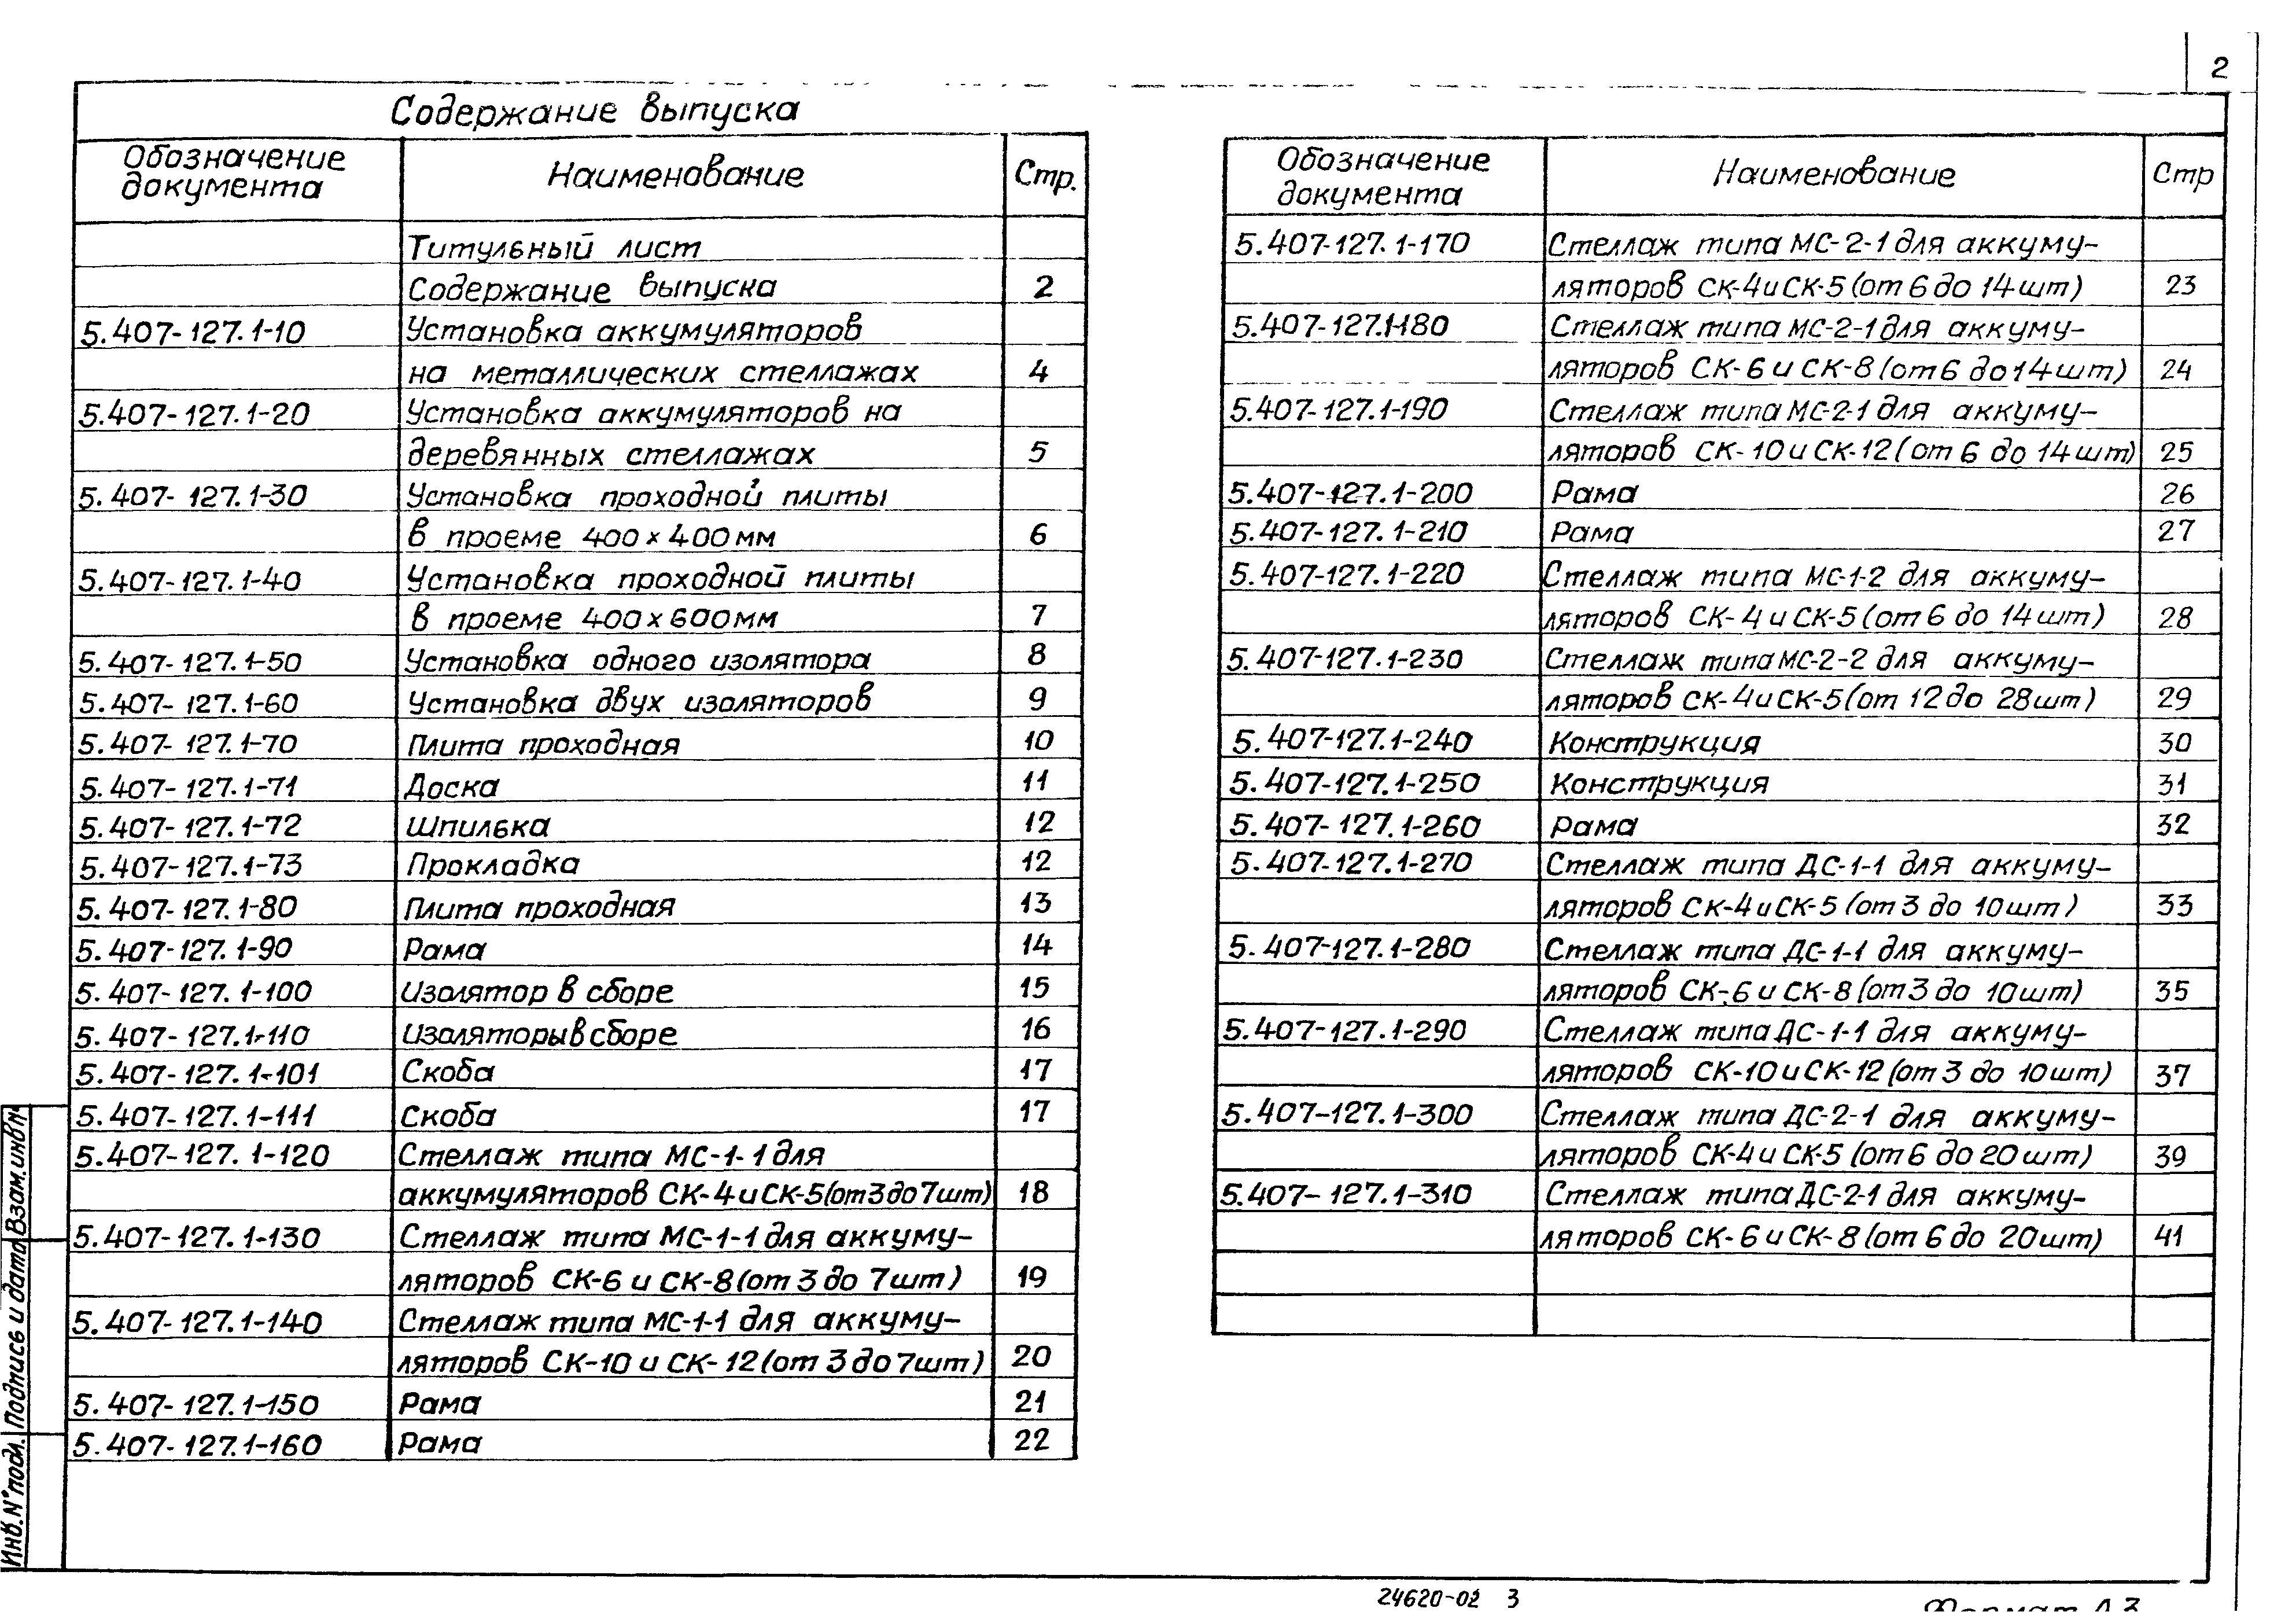 2
Содержание выпуска
Обозначение документа Наименование Стр.
Титульный лист
Содержание выпуска 2
5.407-127.1-10 Установка аккумуляторов
на металлических стеллажах 4
5.407-127.1-20 Установка аккумуляторов на
деревянных стеллажах 5
5.407-127.1-30 Установка проходной плиты
в проеме 400×400мм 6
5.407-127.1-40 Установка проходной плиты
в проеме 400×600мм 7
5.407-127.1-50 Установка одного изолятора 8
5.407-127.1-60 Установка двух изоляторов 9
5.407-127.1-70 Плита проходная 10
5.407-127.1-71 Доска 11
5.407-127.1-72 Шпилька 12
5.407-127.1-73 Прокладка 12
5.407-127.1-80 Плита проходная 13
5.407-127.1-90 Рама 14
5.407-127.1-100 Изолятор в сборе 15
5.407-127.1-110 Изоляторы в сборе 16
5.407-127.1-101 Скоба 17
5.407-127.1-111 Скоба 17
5.407-127.1-120 Стеллаж типа МС-1-1 для
аккумуляторов СК-4 и СК-5(от 3 до 7шт) 18
5.407-127.1-130 Стеллаж типа МС-1-1 для аккуму-
ляторов СК-6 и СК-8(от 3 до 7шт) 19
5.407-127.1-140 Стеллаж типа МС-1-1 для аккуму-
ляторов СК-10 и СК-12(от 3 до 7шт) 20
5.407-127.1-150 Рама 21
5.407-127.1-160 Рама 22
Обозначение документа Наименование Стр
5.407-127.1-170 Стеллаж типа МС-2-1 для аккуму-
ляторов СК-4 и СК-5 (от 6 до 14шт) 23
5.407-127.1-180 Стеллаж типа МС-2-1 для аккуму-
ляторов СК-6 и СК-8 (от 6 до 14шт) 24
5.407-127.1-190 Стеллаж типа МС-2-1 для аккуму-
ляторов СК-10 и СК-12(от 6 до 14шт) 25
5.407-127.1-200 Рама 26
5.407-127.1-210 Рама 27
5.407-127.1-220 Стеллаж типа МС-1-2 для аккуму-
ляторов СК-4 и СК-5(от 6 до 14шт) 28
5.407-127.1-230 Стеллаж типа МС-2-2 для аккуму-
ляторов СК-4 и СК-5(от 12 до 28шт) 29
5.407-127.1-240 Конструкция 30
5.407-127.1-250 Конструкция 31
5.407-127.1-260 Рама 32
5.407-127.1-270 Стеллаж типа ДС-1-1 для аккуму-
ляторов СК-4 и СК-5 (от 3 до 10шт) 33
5.407-127.1-280 Стеллаж типа ДС-1-1 для аккуму-
ляторов СК-6 и СК-8 (от 3 до 10шт) 35
5.407-127.1-290 Стеллаж типа ДС-1-1 для аккуму-
ляторов СК-10 и СК-12 (от 3 до 10шт) 37
5.407-127.1-300 Стеллаж типа ДС-2-1 для аккуму-
ляторов СК-4 и СК-5 (от 6 до 20шт) 39
5.407-127.1-310 Стеллаж типа ДС-2-1 для аккуму-
ляторов СК-6 и СК-8 (от 6 до 20шт) 41
Инв.№ подл. Подпись и дата Взам.инв№
24620-02 3
Формат А3